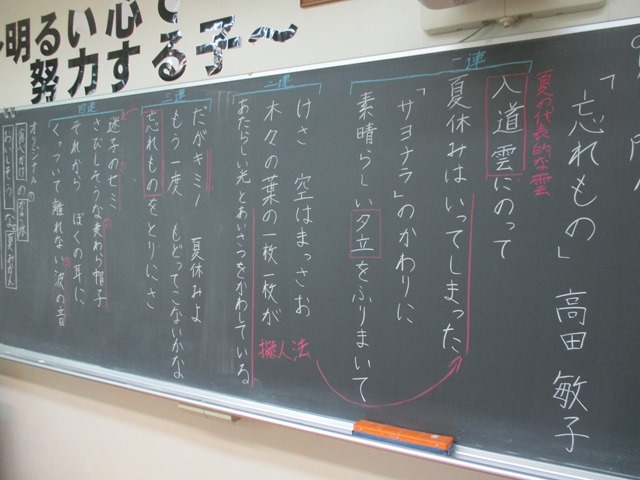 ～明るい心で
努力する子～
「忘れもの」 高田 敏子
夏の代表的な雲
入道雲にのって
夏休みはいってしまった
「サヨナラ」のかわりに
素晴らしい夕立をふりまいて
一連
けさ 空はまっさお
木々の葉の一枚一枚が
あたらしい光とあいさつをかわしている
二連
擬人法
だがキミ! 夏休みよ
もう一度 もどってこないかな
忘れものをとりにさ
三連
迷子のセミ
さびしそうな麦わら帽子
それから ぼくの耳に
くっついて離れない波の音
四連
オリジナルの